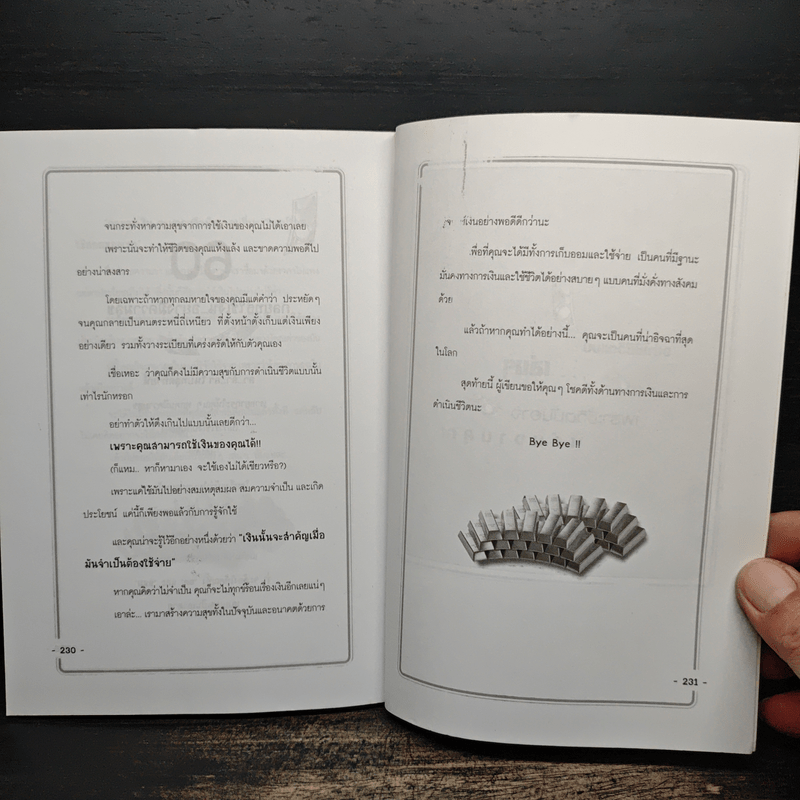 จนกระทั่งหาความสุขจากการใช้เงินของคุณไม่ได้เอาเลย
เพราะนั่นจะทำให้ชีวิตของคุณแห้งแล้ง และขาดความพอดีไป
อย่างน่าสงสาร
โดยเฉพาะถ้าหากทุกลมหายใจของคุณมีแต่คำว่า ประหยัดๆ
จนคุณกลายเป็นคนตระหนี่ถี่เหนียว ที่ตั้งหน้าตั้งเก็บแต่เงินเพียง
อย่างเดียว รวมทั้งวางระเบียบที่เคร่งครัดให้กับตัวคุณเอง
เชื่อเหอะ ว่าคุณก็คงไม่มีความสุขกับการดำเนินชีวิตแบบนั้น
เท่าไรนักหรอก
อย่าทำตัวให้ตึงเกินไปแบบนั้นเลยดีกว่า...
เพราะคุณสามารถใช้เงินของคุณได้!!
(ก็แหม.. หาก็หามาเอง จะใช้เองไม่ได้เชียวหรือ?)
เพราะแค่ใช้มันไปอย่างสมเหตุสมผล สมความจำเป็น และเกิด
ประโยชน์ แค่นี้ก็เพียงพอแล้วกับการรู้จักใช้
และคุณน่าจะรู้ไว้อีกอย่างหนึ่งด้วยว่า "เงินนั้นจะสำคัญเมื่อ
มันจำเป็นต้องใช้จ่าย"
หากคุณคิดว่าไม่จำเป็น คุณก็จะไม่ทุกข์ร้อนเรื่องเงินอีกเลยแน่ๆ
เอาล่ะ... เรามาสร้างความสุขทั้งในปัจจุบันและอนาคตด้วยการ
- 230 -
เงินอย่างพอดีดีกว่านะ
เพื่อที่คุณจะได้มีทั้งการเก็บออมและใช้จ่าย เป็นคนที่มีฐานะ
มั่นคงทางการเงินและใช้ชีวิตได้อย่างสบายๆ แบบคนที่มั่งคั่งทางสังคม
ด้วย
แล้วถ้าหากคุณทำได้อย่างนี้... คุณจะเป็นคนที่น่าอิจฉาที่สุด
ในโลก
สุดท้ายนี้ ผู้เขียนขอให้คุณๆ โชคดีทั้งด้านทางการเงินและการ
ดำเนินชีวิตนะ
Bye Bye !!
- 231 -